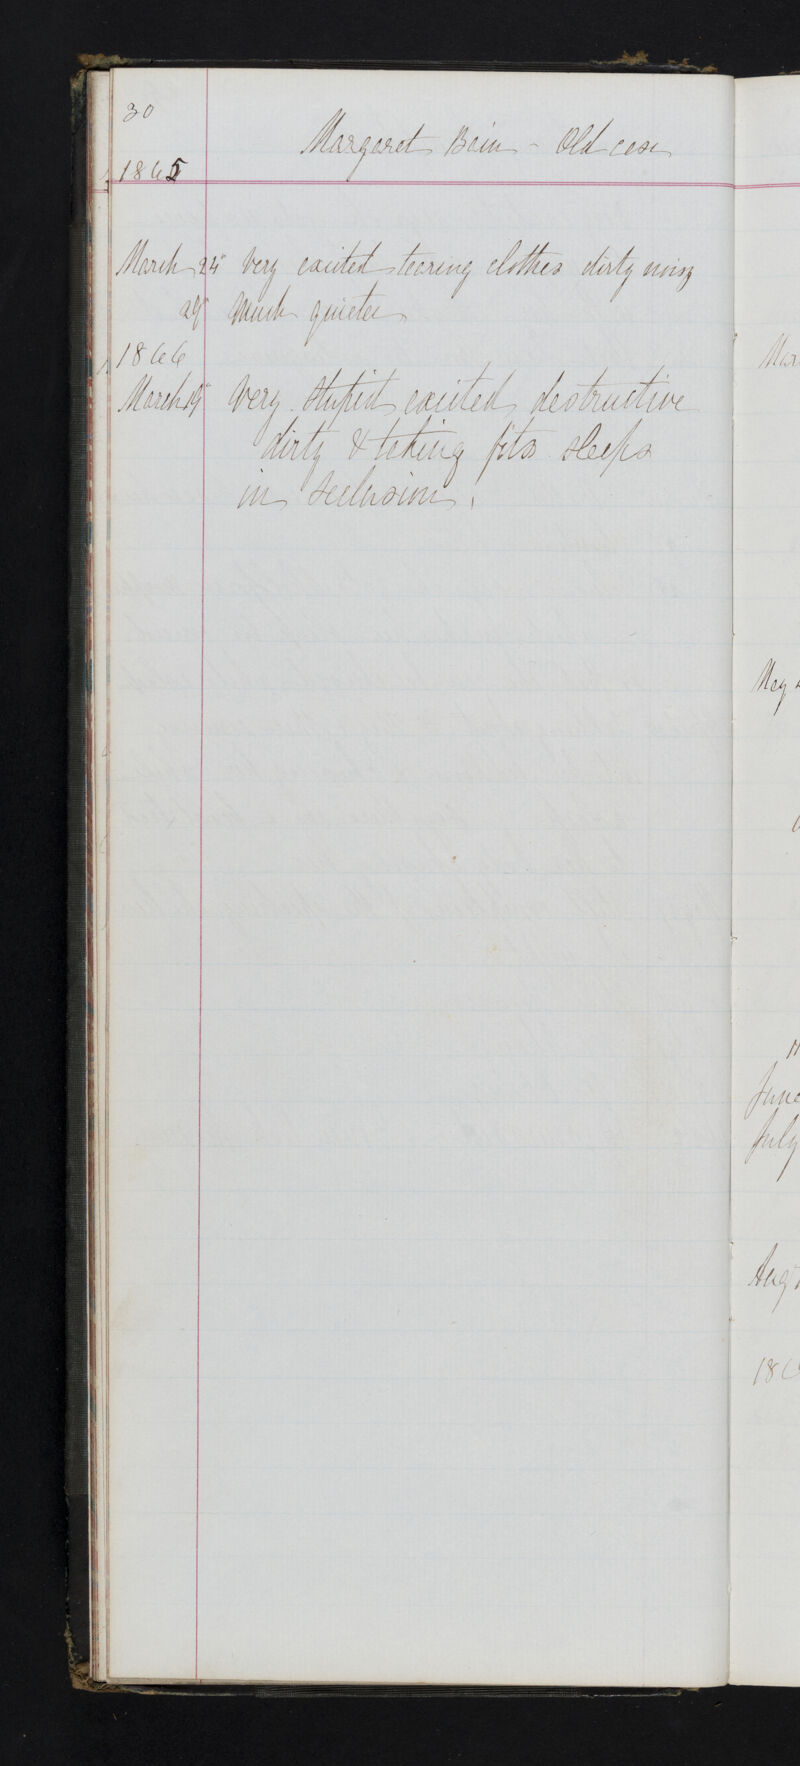 30
Margaret Bain - Old case
1865
March 25 Very excited tearing clothes dirty noisy
29 Much quieter
1866
March 19 Very stupid excited destructive
dirty & taking fits sleeps
in seclusion.
Mar
May
June
July
Aug
186